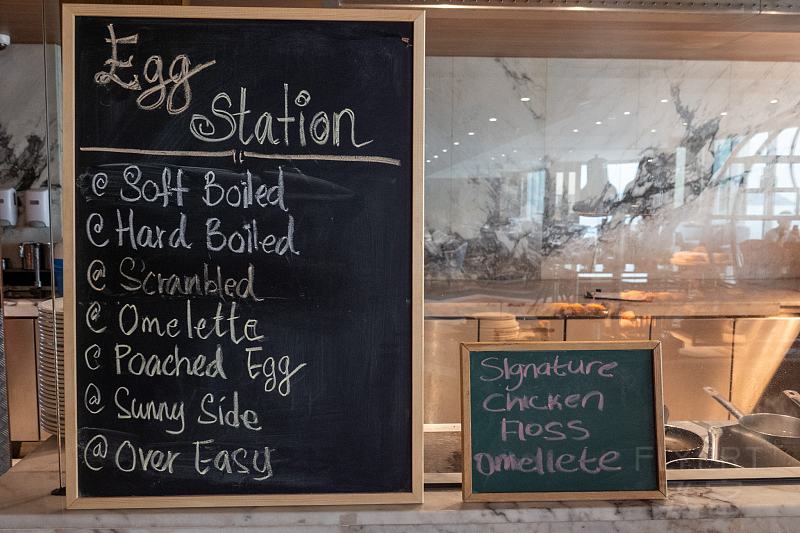 Egg
Station
@ Soft Boiled
@ Hard Boiled
@ Scrambled
@ Omelette
@ Poached Egg
@ Sunny Side
@ Over Easy
Signature
Chicken
Floss
Omellete